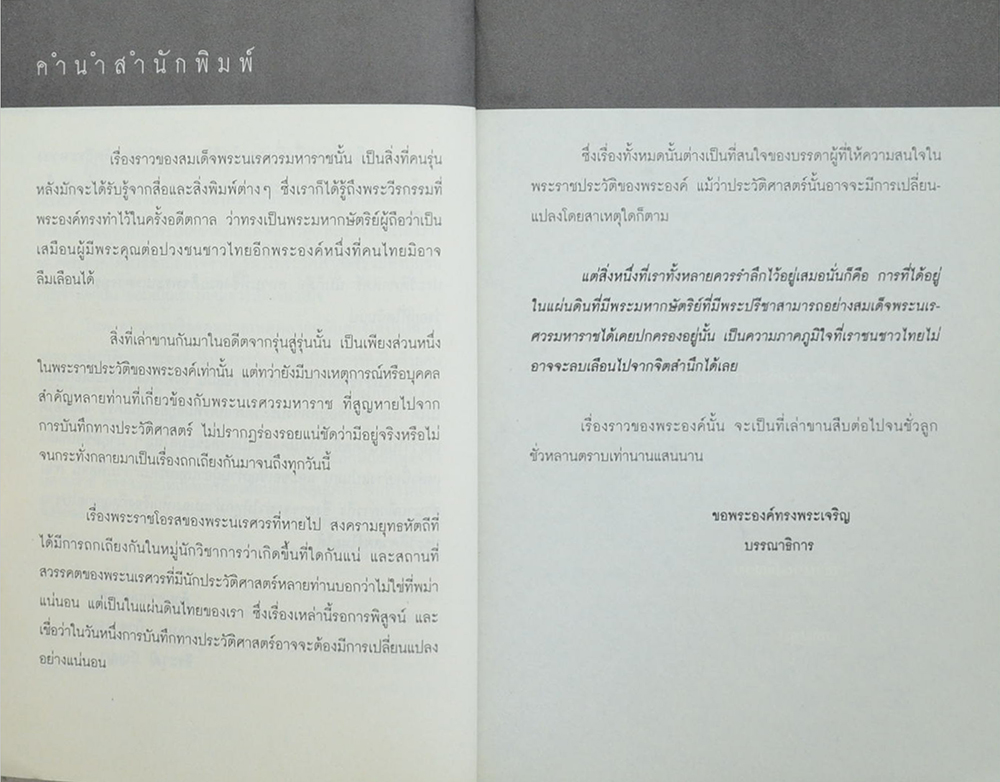 คำนำสำนักพิมพ์
เรื่องราวของสมเด็จพระนเรศวรมหาราชนั้น เป็นสิ่งที่คนรุ่น
หลังมักจะได้รับรู้จากสื่อและสิ่งพิมพ์ต่างๆ ซึ่งเราก็ได้รู้ถึงพระวีรกรรมที่
พระองค์ทรงทำไว้ในครั้งอดีตกาล ว่าทรงเป็นพระมหากษัตริย์ผู้ถือว่าเป็น
เสมือนผู้มีพระคุณต่อปวงชนชาวไทยอีกพระองค์หนึ่งที่คนไทยมิอาจ
ลืมเลือนได้
สิ่งที่เล่าขานกันมาในอดีตจากรุ่นสู่รุ่นนั้น เป็นเพียงส่วนหนึ่ง
ในพระราชประวัติของพระองค์เท่านั้น แต่ทว่ายังมีบางเหตุการณ์หรือบุคคล
สำคัญหลายท่านที่เกี่ยวข้องกับพระนเรศวรมหาราช ที่สูญหายไปจาก
การบันทึกทางประวัติศาสตร์ ไม่ปรากฏร่องรอยแน่ชัดว่ามีอยู่จริงหรือไม่
จนกระทั่งกลายมาเป็นเรื่องถกเถียงกันมาจนถึงทุกวันนี้
เรื่องพระราชโอรสของพระนเรศวรที่หายไป สงครามยุทธหัตถีที่
ได้มีการถกเถียงกันในหมู่นักวิชาการว่าเกิดขึ้นที่ใดกันแน่ และสถานที่
สวรรคตของพระนเรศวรที่มีนักประวัติศาสตร์หลายท่านบอกว่าไม่ใช่ที่พม่า
แน่นอน แต่เป็นในแผ่นดินไทยของเรา ซึ่งเรื่องเหล่านี้รอการพิสูจน์ และ
เชื่อว่าในวันหนึ่งการบันทึกทางประวัติศาสตร์อาจจะต้องมีการเปลี่ยนแปลง
อย่างแน่นอน
ซึ่งเรื่องทั้งหมดนั้นต่างเป็นที่สนใจของบรรดาผู้ที่ให้ความสนใจใน
พระราชประวัติของพระองค์ แม้ว่าประวัติศาสตร์นั้นอาจจะมีการเปลี่ยน-
แปลงโดยสาเหตุใดก็ตาม
แต่สิ่งหนึ่งที่เราทั้งหลายควรรำลึกไว้อยู่เสมอนั่นก็คือ การที่ได้อยู่
ในแผ่นดินที่มีพระมหากษัตริย์ที่มีพระปรีชาสามารถอย่างสมเด็จพระนเร-
ศวรมหาราชได้เคยปกครองอยู่นั้น เป็นความภาคภูมิใจที่เราชนชาวไทยไม่
อาจจะลบเลือนไปจากจิตสำนึกได้เลย
เรื่องราวของพระองค์นั้น จะเป็นที่เล่าขานสืบต่อไปจนชั่วลูก
ชั่วหลานตราบเท่านานแสนนาน
ขอพระองค์ทรงพระเจริญ
บรรณาธิการ